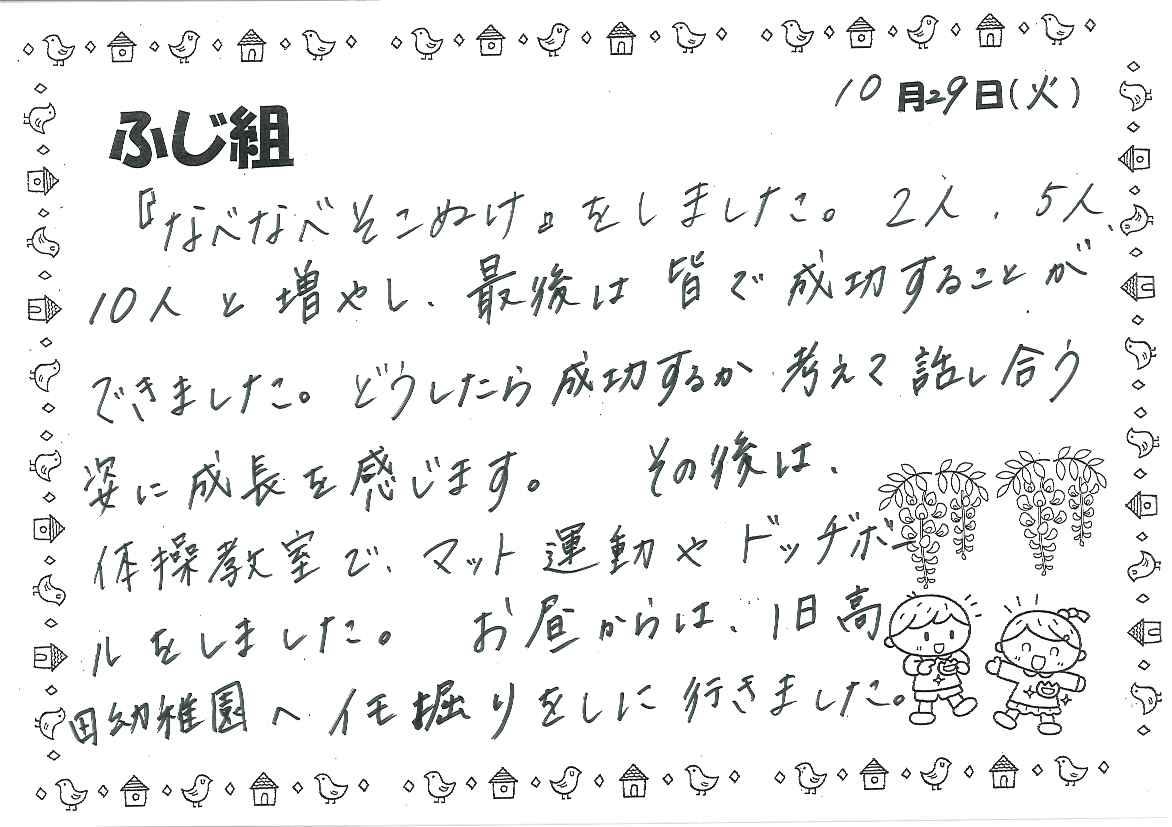 10月29日(火)
ふじ組
『なべなべそこぬけ』をしました。2人、5人、
10人と増やし、最後は皆で成功することが
できました。どうしたら成功するか考えて話し合う
姿に成長を感じます。 その後は、
体操教室で、マット運動やドッヂボー
ルをしました。 お昼からは、旧高
田幼稚園へイモ掘りをしに行きました。